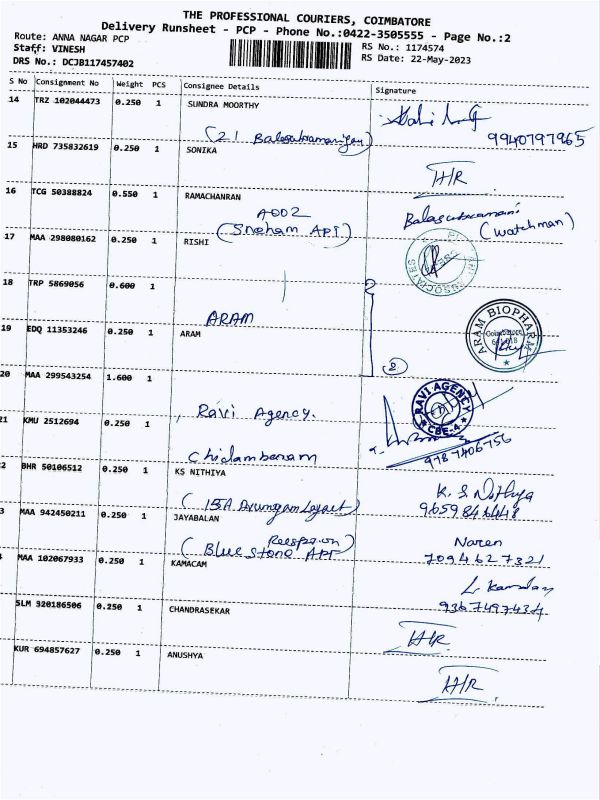 THE PROFESSIONAL COURIERS, COIMBATORE
Delivery Runsheet - PCP - Phone No.:0422-3505555 - Page No.:2
Route: ANNA NAGAR PCP
Staff: VINESH
DRS No.: DCJB117457402
RS No.: 1174574
RS Date: 22-May-2023
S No Consignment No Weight PCS Consignee Details Signature
14 TRZ 102044473 0.250 1 SUNDRA MOORTHY
9940797965
15 HRD 735832619 0.250 1 SONIKA
H/R
16 TCG 50388824 0.550 1 RAMACHANRAN
A002
(Sneham Apt)
Balasubramani
(Watchman)
17 MAA 298080162 0.250 1 RISHI
ASSOCIATES
18 TRP 5869056 0.600 1
ARAM
19 EDQ 11353246 0.250 1 ARAM
ARAM BIOPHARM
Coimbatore
2
20 MAA 299543254 1.600 1
Ravi Agency.
RAVI AGENCY
CBE-4
21 KMU 2512694 0.250 1
Chidambaram
9787406756
2 BHR 50106512 0.250 1 KS NITHIYA
K. S Nithya
9659846448
3 MAA 942450211 0.250 1 JAYABALAN
(Blue Stone Apt
Naren
7094627321
MAA 102067933 0.250 1 KAMACAM
9367497434
SLM 320186506 0.250 1 CHANDRASEKAR
H/R
KUR 694857627 0.250 1 ANUSHYA
H/R